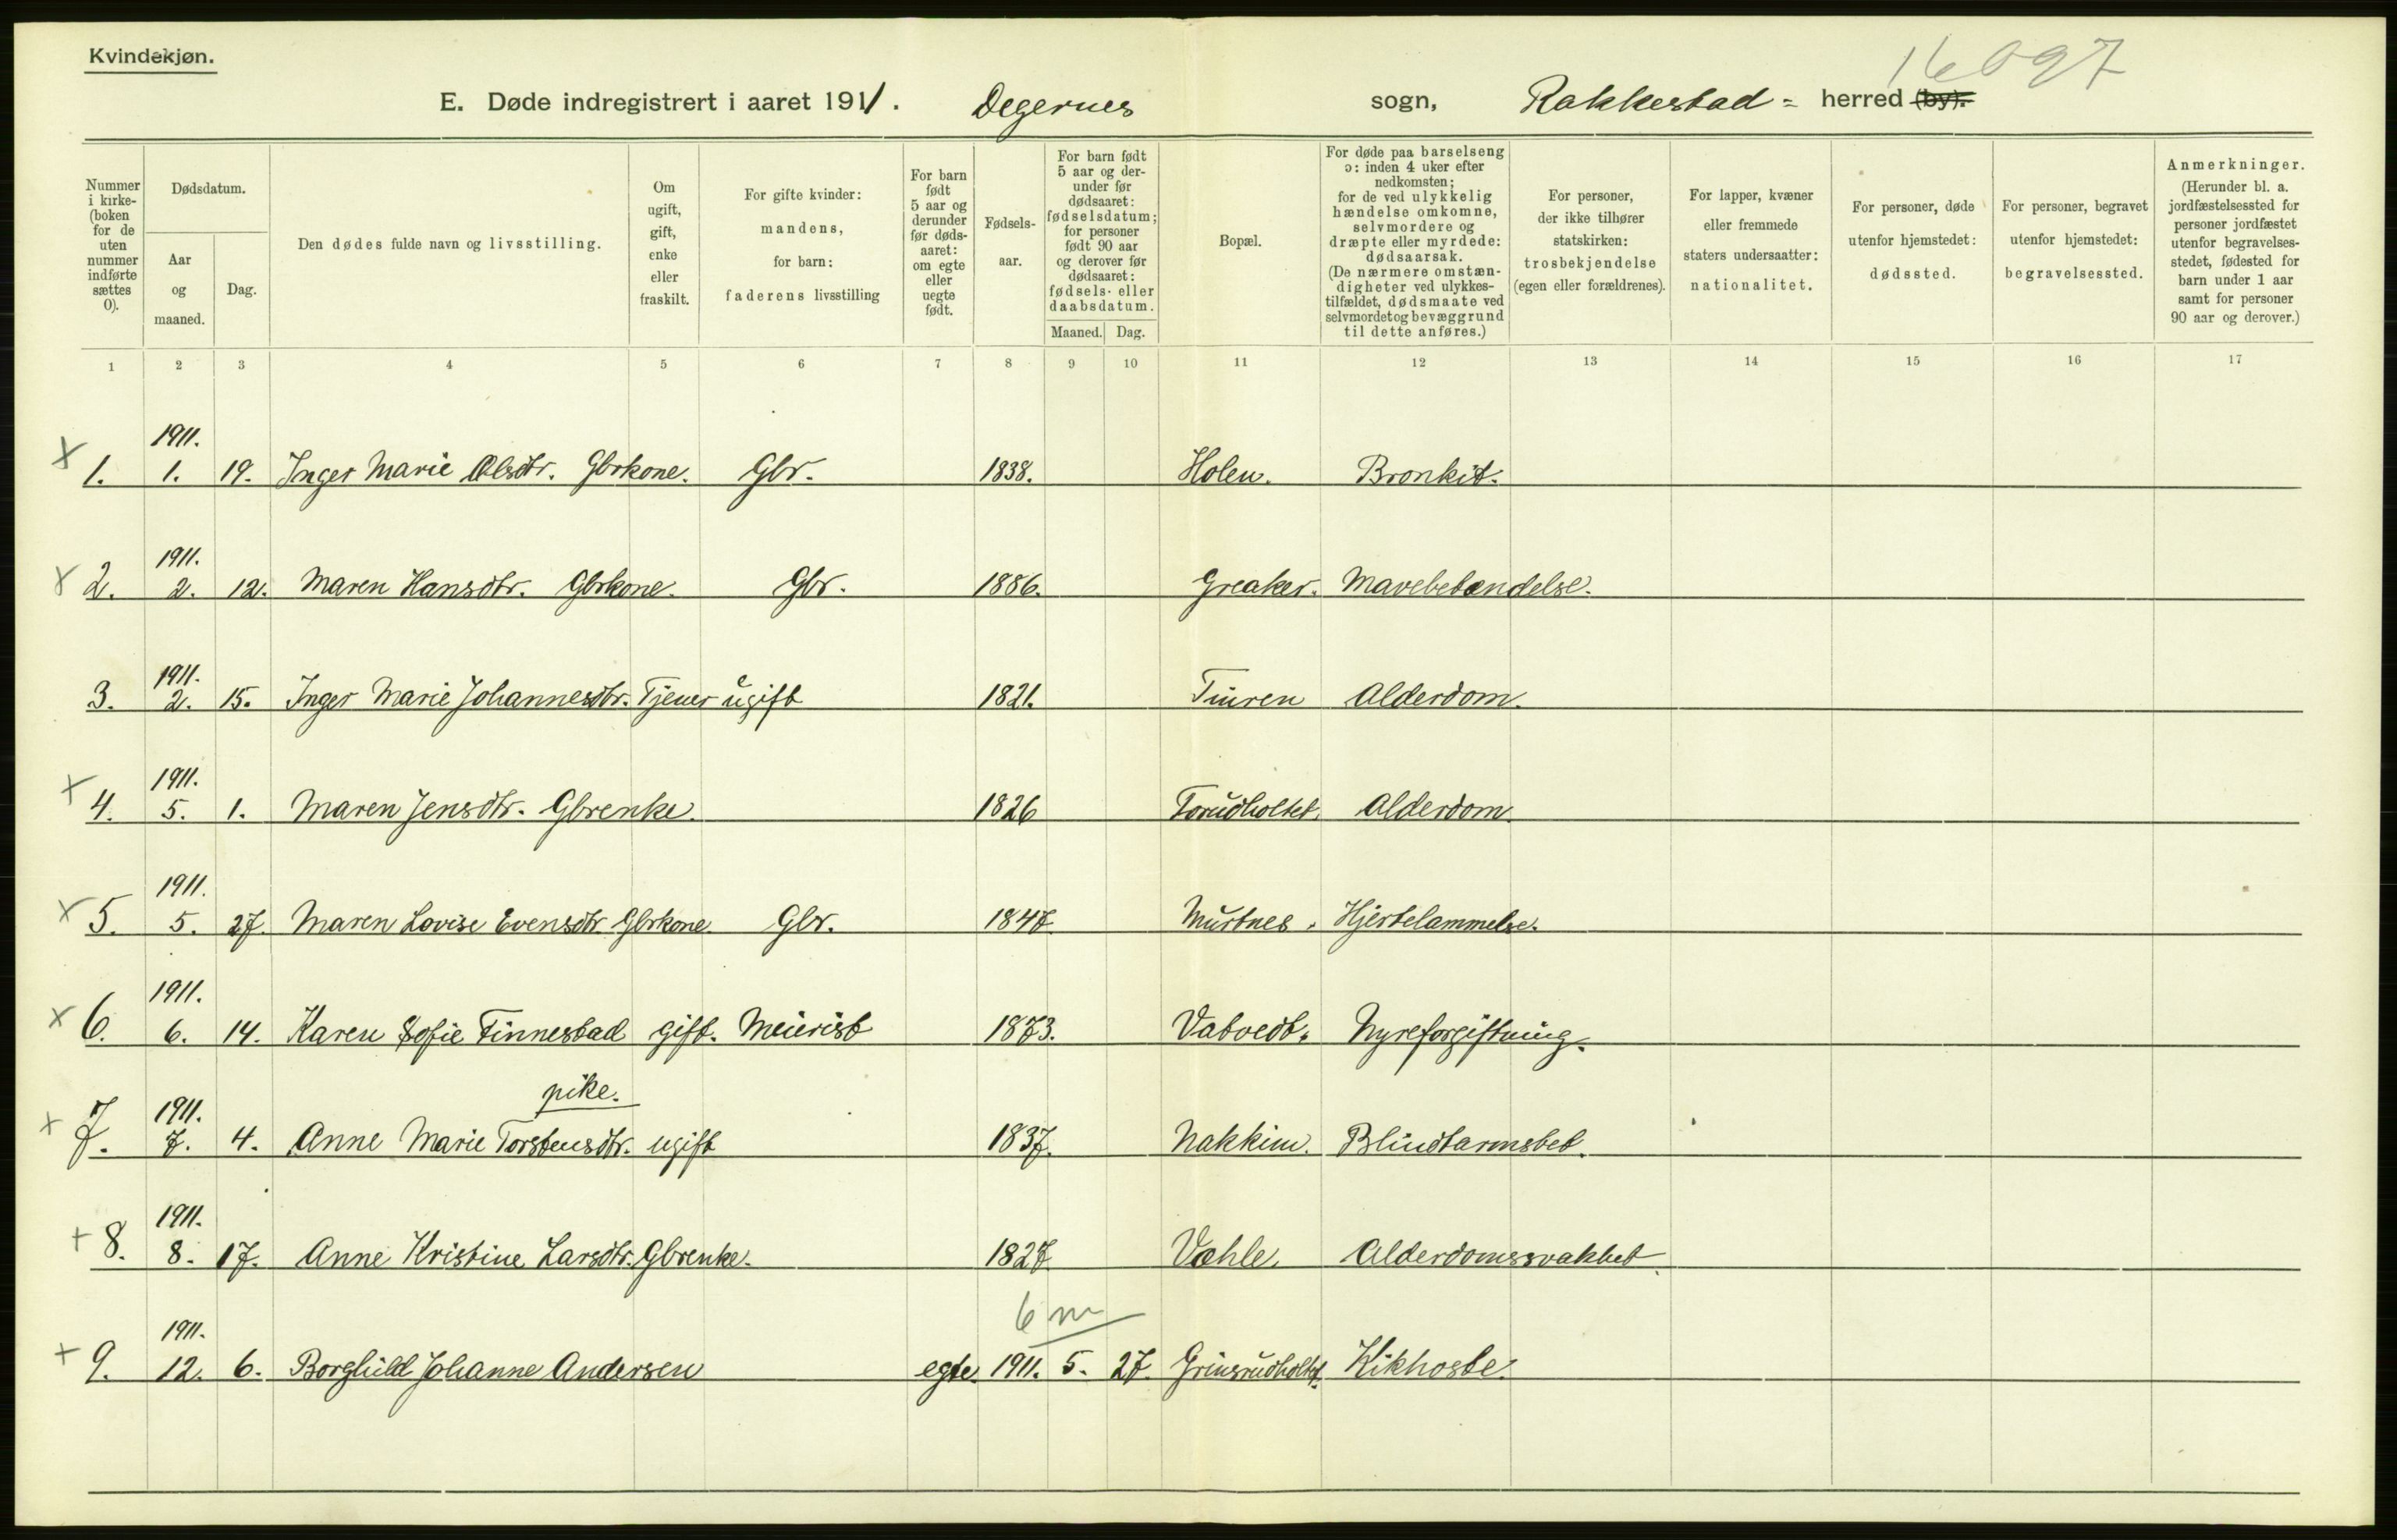 Kvindekjøn.
16097
E. Døde indregistrert i aaret 1911. Degernes sogn, Rakkestad = herred (by).
Nummer i kirke- (boken for de uten nummer indførte sættes 0).
Dødsdatum.
Aar og maaned.
Dag.
Den dødes fulde navn og livsstilling.
Om ugift, gift, enke eller fraskilt.
For gifte kvinder: mandens, for barn: faderens livsstilling
For barn født 5 aar og derunder før døds- aaret: om egte eller uegte født.
Fødsels- aar.
For barn født 5 aar og der- under før dødsaaret: fødselsdatum; for personer født 90 aar og derover før dødsaaret: fødsels- eller daabsdatum.
Maaned. Dag.
Bopæl.
For døde paa barselseng ɔ: inden 4 uker efter nedkomsten; for de ved ulykkelig hændelse omkomne, selvmordere og dræpte eller myrdede: dødsaarsak. (De nærmere omstæn- digheter ved ulykkes- tilfældet, dødsmaate ved selvmordet og bevæggrund til dette anføres.)
For personer, der ikke tilhører statskirken: trosbekjendelse (egen eller forældrenes).
For lapper, kvæner eller fremmede staters undersaatter: nationalitet.
For personer, døde utenfor hjemstedet: dødssted.
For personer, begravet utenfor hjemstedet: begravelsessted.
Anmerkninger. (Herunder bl. a. jordfæstelsessted for personer jordfæstet utenfor begravelses- stedet, fødested for barn under 1 aar samt for personer 90 aar og derover.)
1 2 3 4 5 6 7 8 9 10 11 12 13 14 15 16 17
1911.
x 1. 1. 19. Inger Marie Olsdtr. Gbrkone. Gbr. 1838. Holen. Bronkit.
1911.
x 2. 2. 12. Maren Hansdtr. Gbrkone. Gbr. 1886. Greaker. Mavebetændelse.
1911.
3. 2. 15. Inger Marie Johannesdtr. Tjener ugift 1821. Turen Alderdom.
1911.
x 4. 5. 1. Maren Jensdtr. Gbrenke. 1826 Torudholtet. Alderdom.
1911.
x 5. 5. 27. Maren Lovise Evensdtr Gbrkone. Gbr. 1847. Murtnes. Hjertelammelse.
1911.
x 6. 6. 14. Karen Sofie Finnestad gift. Meierist 1873. Vatvedt. Nyreforgiftning.
pike.
1911.
x 7. 7. 4. Anne Marie Torstensdtr. ugift 1837. Nakkim. Blindtarmsbet.
1911.
+ 8. 8. 17. Anne Kristine Larsdtr. Gbrenke. 1827. Væhle. Alderdomssvakhet.
6 m
1911.
+ 9. 12. 6. Borghild Johanne Andersen egte. 1911. 5. 27. Grinsrudholtet. Kikhoste.